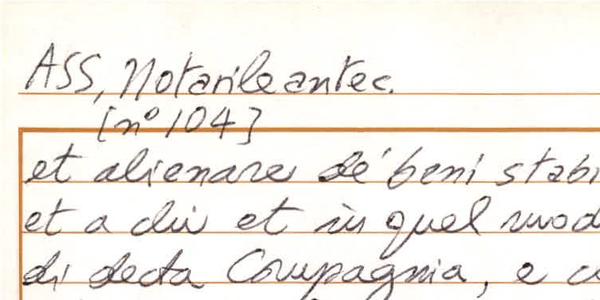 ASS, Notarile antec.
[n° 104]
et alienare de' beni stabi
et a chi et in quel mod
di decta Compagnia, e c